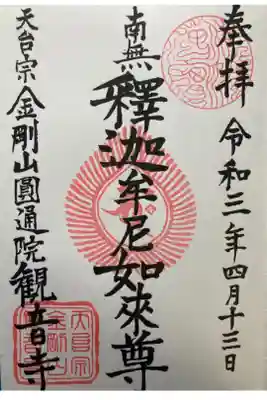 奉拝
令和三年四月十三日
南無
釋迦牟尼如來尊
天台宗
金剛山圓通院
観音寺